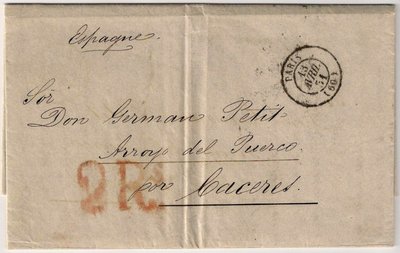 Espagne.
PARIS
13
AVRIL
51
(60)
Sor
Don German Petit
Arroyo del Puerco
por Caceres.
2 Rs